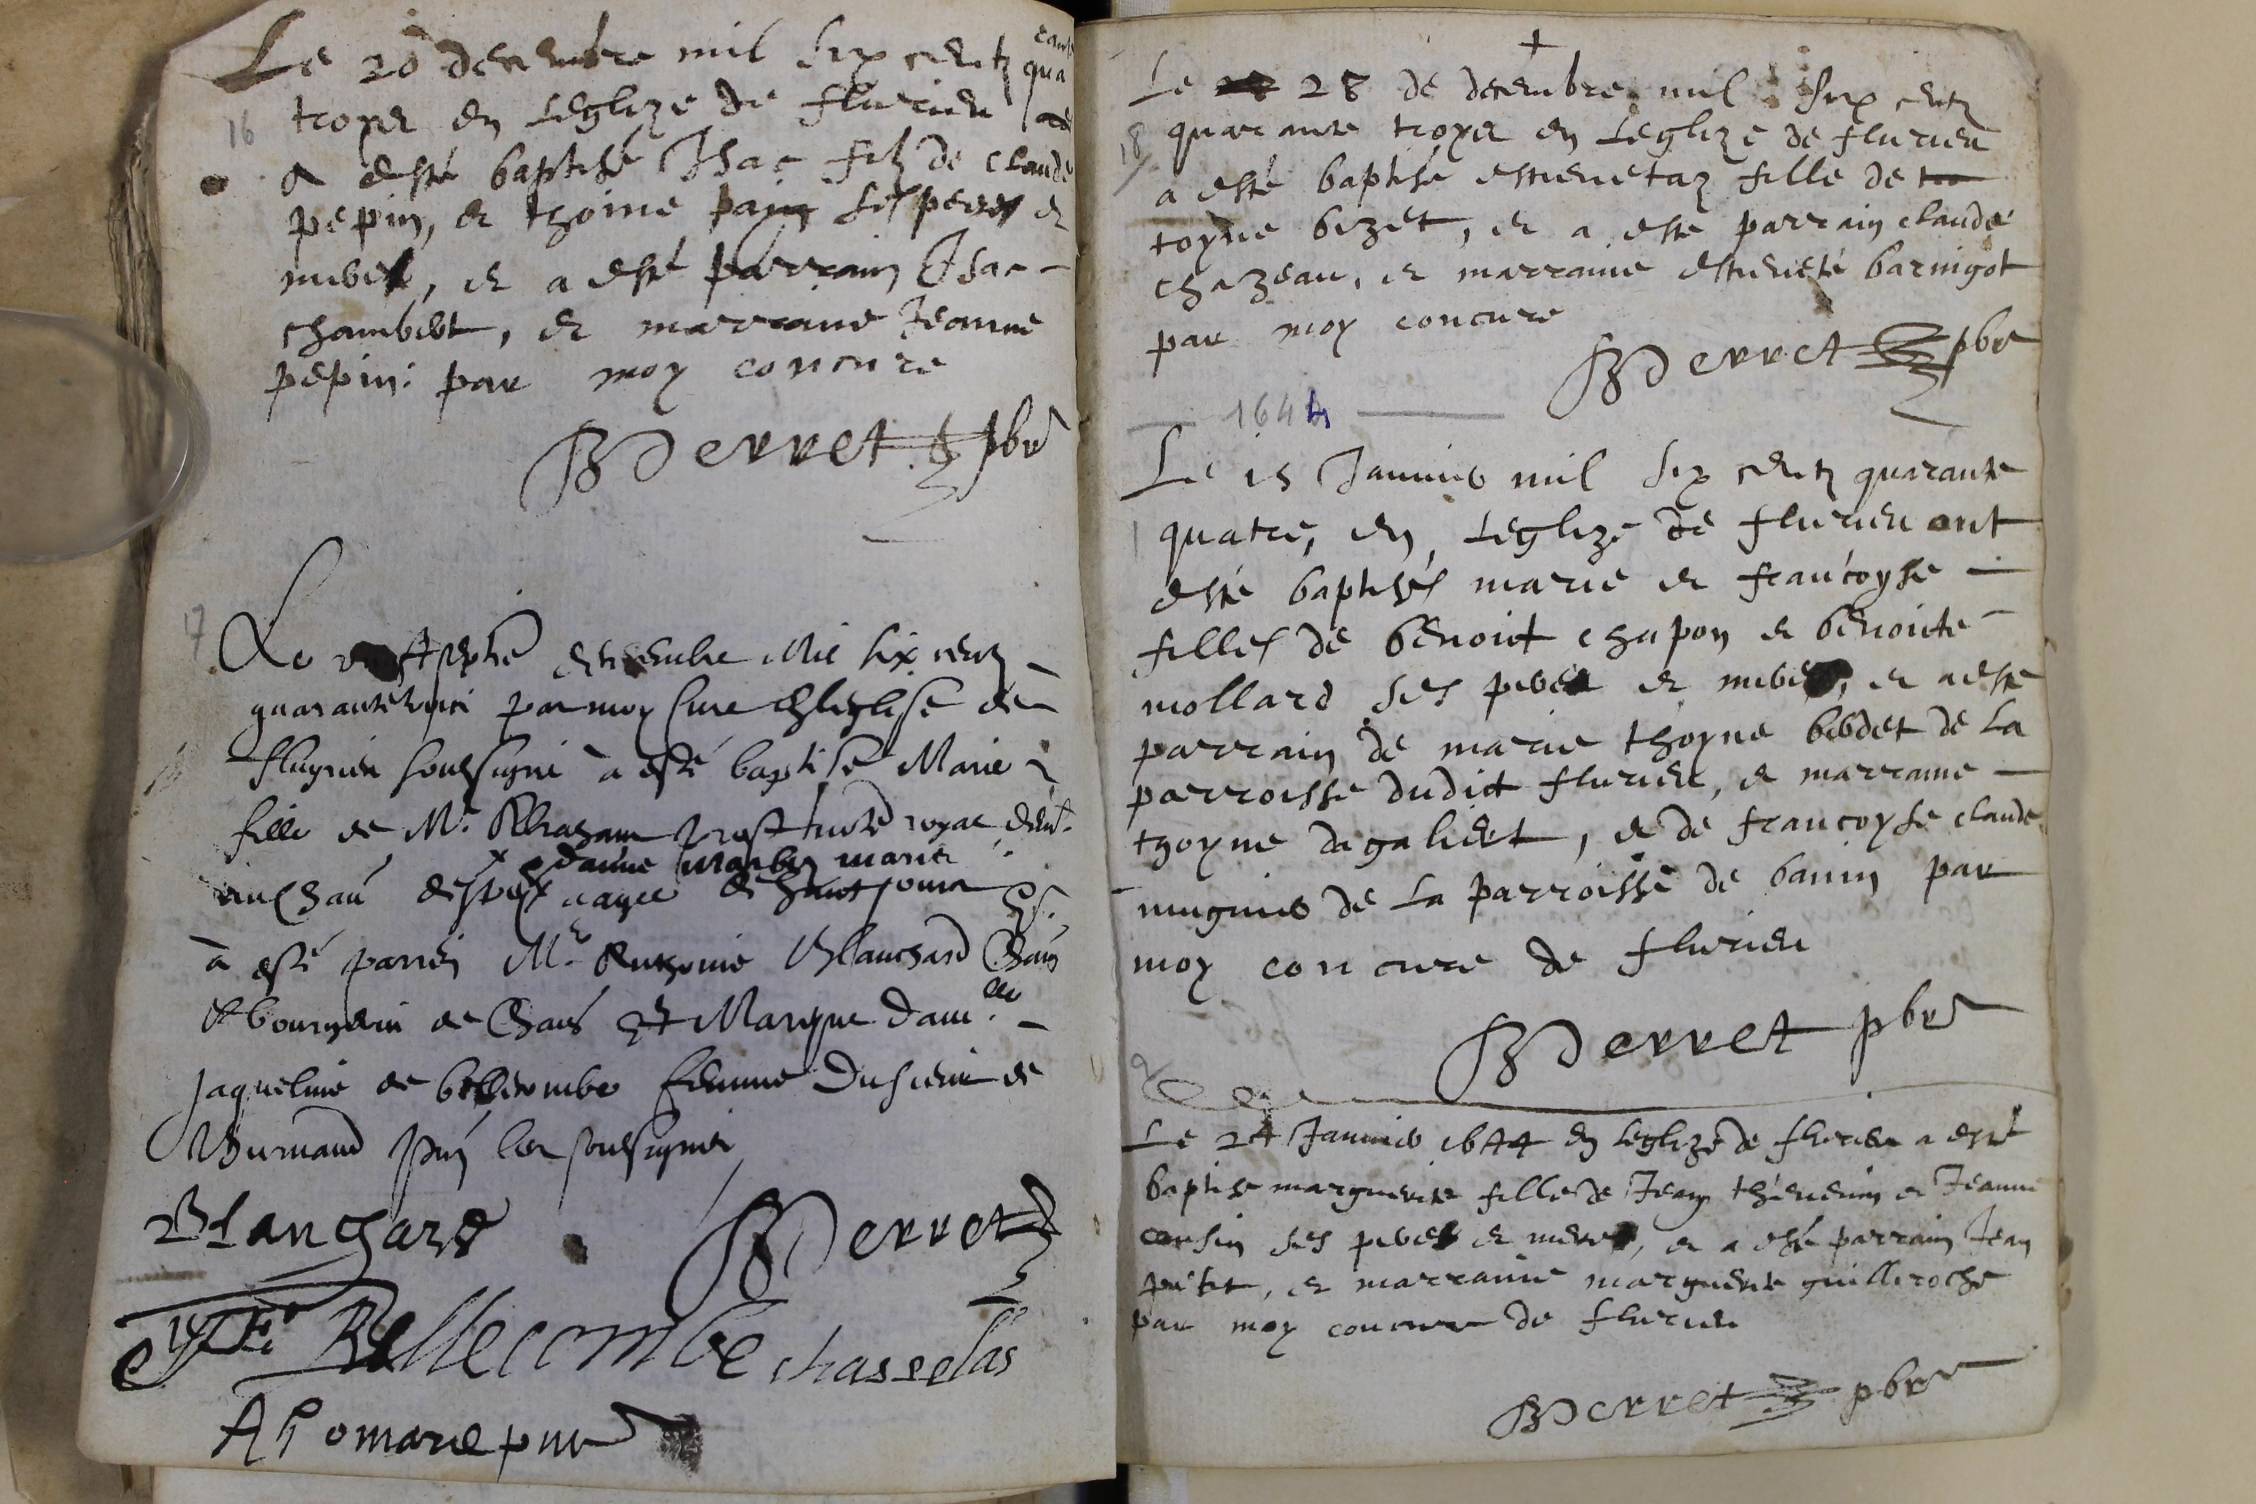 Le 20 decembre mil six centz qua
rante
16
troys en Leglize de flurieu
a esté baptisé Isac filz de claude
pepin, et thoine ses peres et
meres, et a esté parrain Isac
chambert, et marraine Jeanne
pepin: par moy concure
BDerret pbr
17
Le decembre mil six centz
quarante par moy Cure de leglise de
flurieu soubsigné à esté baptisé Marie
fille de Mr. Abraham royal
danne marie
à esté parrin Mr. Anthoine Blanchard
& bourgeois de Et Marque dam.lle
Jaqueline de bellecombe femme du sieur de
Burnand soubsignes
Blanchard
BDerret
Bellecombe chasselas
+
Le 28 de decembre mil six centz
18
quarante troys en Leglize de flurieu
a esté baptisé estienetaz fille de
toyne bizet, et a este parrain claude
chazeau, et marraine estienete barnigot
par moy concure
BDerret pbr
1644
Le 15 Janvier mil six centz quarante
1
quatre, en Leglize de flurieu ont
esté baptisés marie et francoyse
filles de benoict chapon et benoicte
mollard ses peres et meres, et a este
parrain de marie thoyne de La
parroisse dudict flurieu, et marraine
thoyne dagaliert, et de francoyse claude
mugnier de La parroisse de par
moy concure de flurieu
BDerret pbr
2
Le 24 Janvier 1644 en Leglize de flurieu a esté
baptise marguerite fille de Jean thevenin et Jeanne
cousin ses peres et meres, et a esté parrain Jean
petit, et marraine marguerite guilleroche
par moy concure de flurieu
BDerret pbr